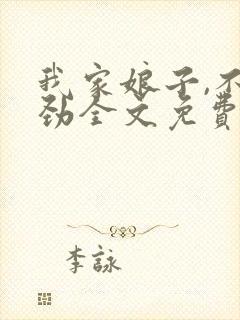 我家娘子,不
劲全文免費
李詠